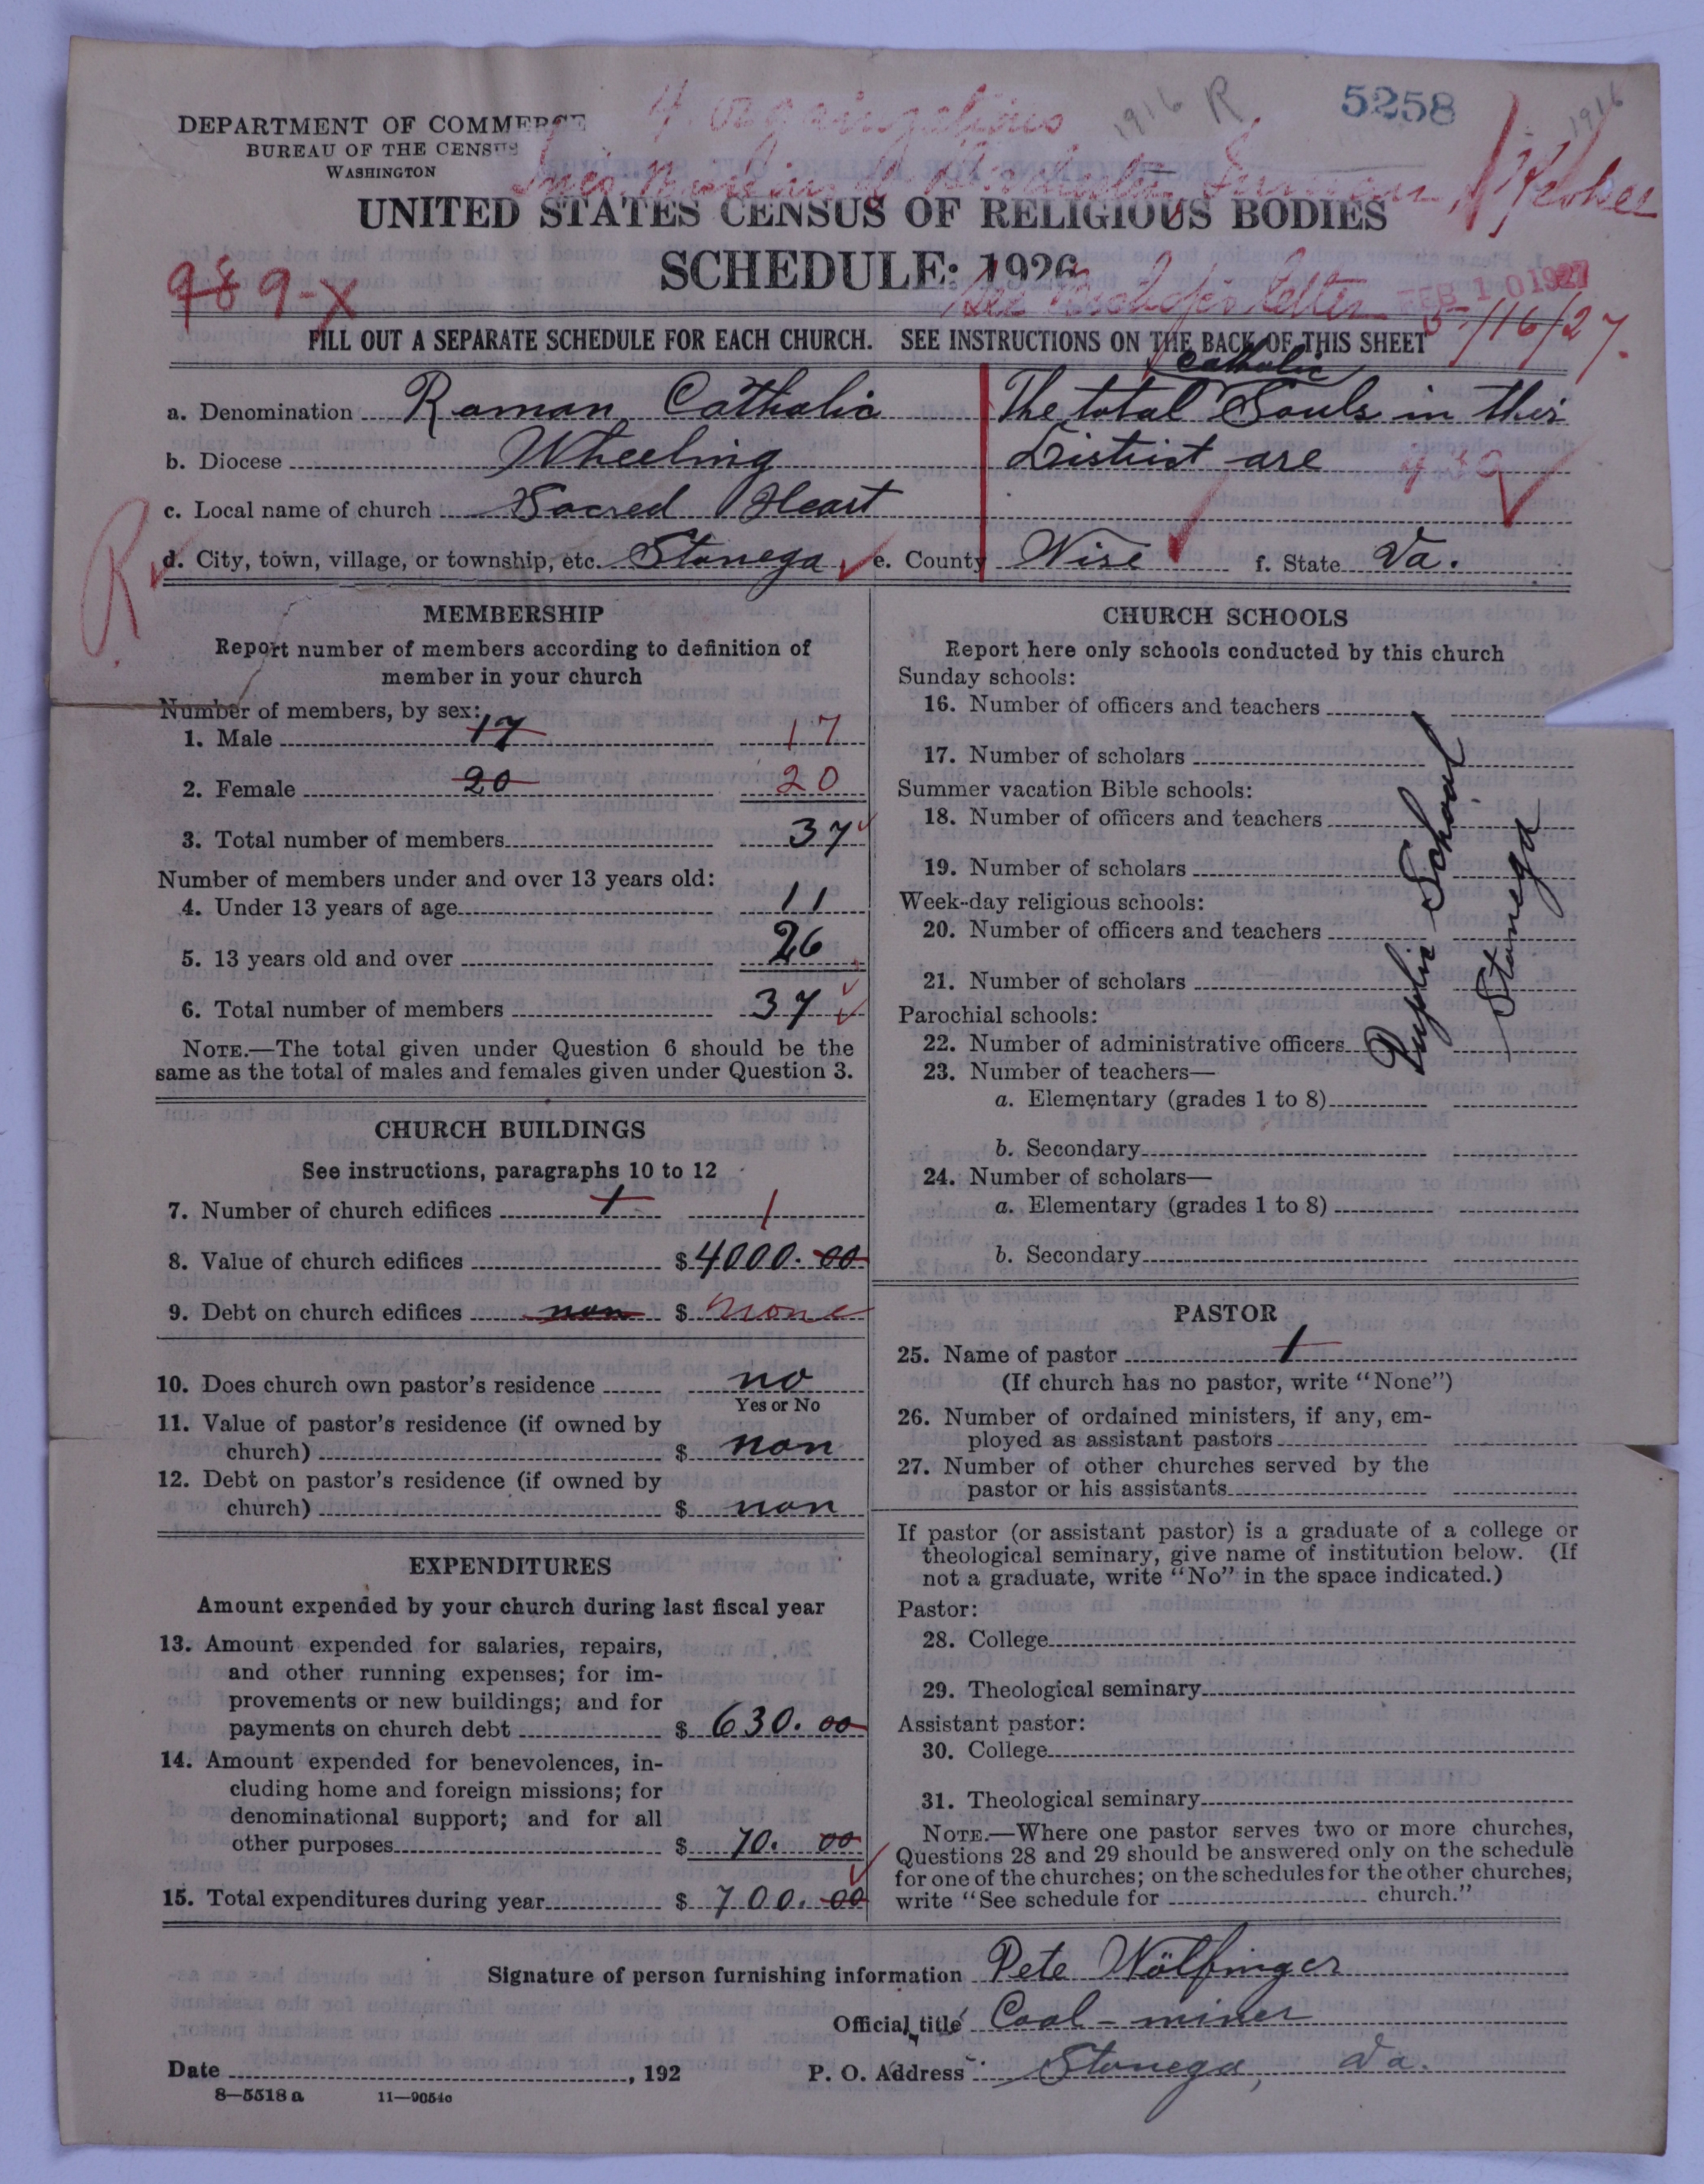 1916 R
5258
1916
DEPARTMENT OF COMMERCE
BUREAU OF THE CENSUS
WASHINGTON
4 organizations
UNITED STATES CENSUS OF RELIGIOUS BODIES
SCHEDULE: 1926
989-X
See Bishop's letter
FEB 10 1927
5/16/27.
FILL OUT A SEPARATE SCHEDULE FOR EACH CHURCH. SEE INSTRUCTIONS ON THE BACK OF THIS SHEET
a. Denomination Roman Catholic
The total Catholic Souls in this
b. Diocese Wheeling
District are
c. Local name of church Sacred Heart
R
d. City, town, village, or township, etc. Stonega e. County Wise f. State Va.
MEMBERSHIP
Report number of members according to definition of
member in your church
Number of members, by sex:
1. Male 17 17
2. Female 20 20
3. Total number of members 37
Number of members under and over 13 years old:
4. Under 13 years of age 11
5. 13 years old and over 26
6. Total number of members 37
NOTE.—The total given under Question 6 should be the
same as the total of males and females given under Question 3.
CHURCH BUILDINGS
See instructions, paragraphs 10 to 12
7. Number of church edifices 1 1
8. Value of church edifices $ 4000.00
9. Debt on church edifices non $ none
10. Does church own pastor's residence no
Yes or No
11. Value of pastor's residence (if owned by
church) $ non
12. Debt on pastor's residence (if owned by
church) $ non
EXPENDITURES
Amount expended by your church during last fiscal year
13. Amount expended for salaries, repairs,
and other running expenses; for im-
provements or new buildings; and for
payments on church debt $ 630.00
14. Amount expended for benevolences, in-
cluding home and foreign missions; for
denominational support; and for all
other purposes $ 70.00
15. Total expenditures during year $ 700.00
CHURCH SCHOOLS
Report here only schools conducted by this church
Sunday schools:
16. Number of officers and teachers
17. Number of scholars
Summer vacation Bible schools:
18. Number of officers and teachers
19. Number of scholars
Week-day religious schools:
20. Number of officers and teachers
21. Number of scholars
Parochial schools:
22. Number of administrative officers
23. Number of teachers—
a. Elementary (grades 1 to 8)
b. Secondary
24. Number of scholars—
a. Elementary (grades 1 to 8)
b. Secondary
Puplic School
Stonega
PASTOR
25. Name of pastor 1
(If church has no pastor, write "None")
26. Number of ordained ministers, if any, em-
ployed as assistant pastors
27. Number of other churches served by the
pastor or his assistants
If pastor (or assistant pastor) is a graduate of a college or
theological seminary, give name of institution below. (If
not a graduate, write "No" in the space indicated.)
Pastor:
28. College
29. Theological seminary
Assistant pastor:
30. College
31. Theological seminary
NOTE.—Where one pastor serves two or more churches,
Questions 28 and 29 should be answered only on the schedule
for one of the churches; on the schedules for the other churches,
write "See schedule for church."
Signature of person furnishing information Pete Wölfinger
Official title Coal-miner
Date , 192
P. O. Address Stonega, Va.
8—5518 a 11—9054c